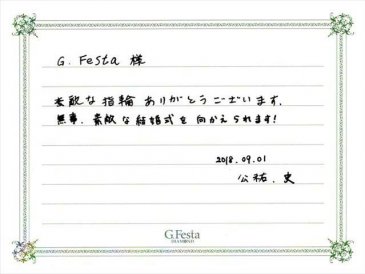 G. Festa 様
素敵な指輪 ありがとうございます.
無事、素敵な結婚式を 向かえられます!
2018.09.01
公祐. 史
G.Festa
DIAMOND